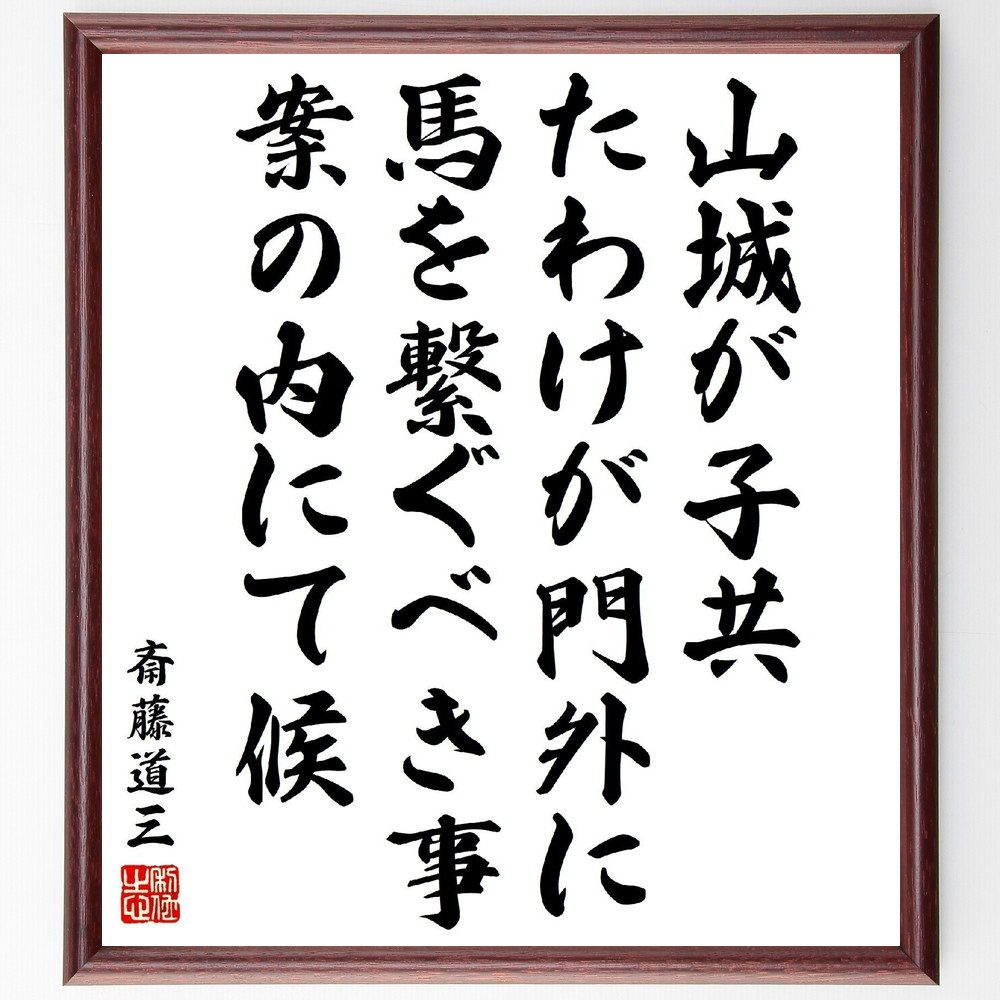 山城が子共
たわけが門外に
馬を繋ぐべき事
案の内にて候
斎藤道三